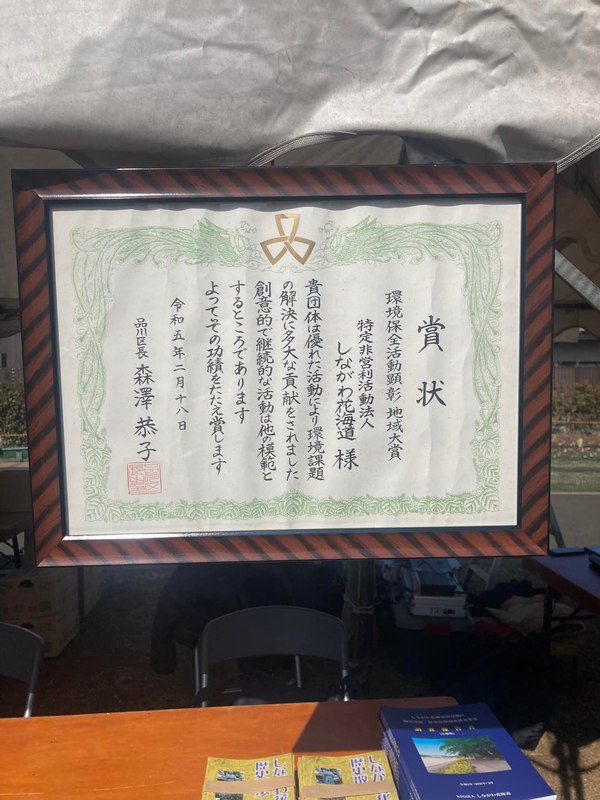 賞状
環境保全活動顕彰 地域大賞
特定非営利活動法人
しながわ花海道 様
貴団体は優れた活動により環境課題
の解決に多大な貢献をされました
創意的で継続的な活動は他の模範と
するところであります
よってその功績をたたえ賞します
令和五年二月十八日
品川区長 森澤恭子
調査報告書
NPO法人 しながわ花海道
しなが
歴史散
しなが
歴史散